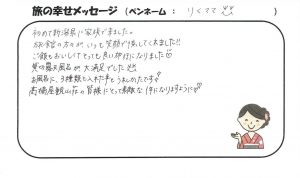 旅の幸せメッセージ（ペンネーム：りくママ）
初めて新潟県に家族で来ました。
旅館の方がいつも笑顔で接してくれました!!
ご飯もおいしくてとても良い旅行になりました♡
貸切露天風呂が大満足でした
お風呂に、3種類も入れた事もうれしかったです♡
高橋屋観山荘の皆様にとって素敵な1年になりますように♡